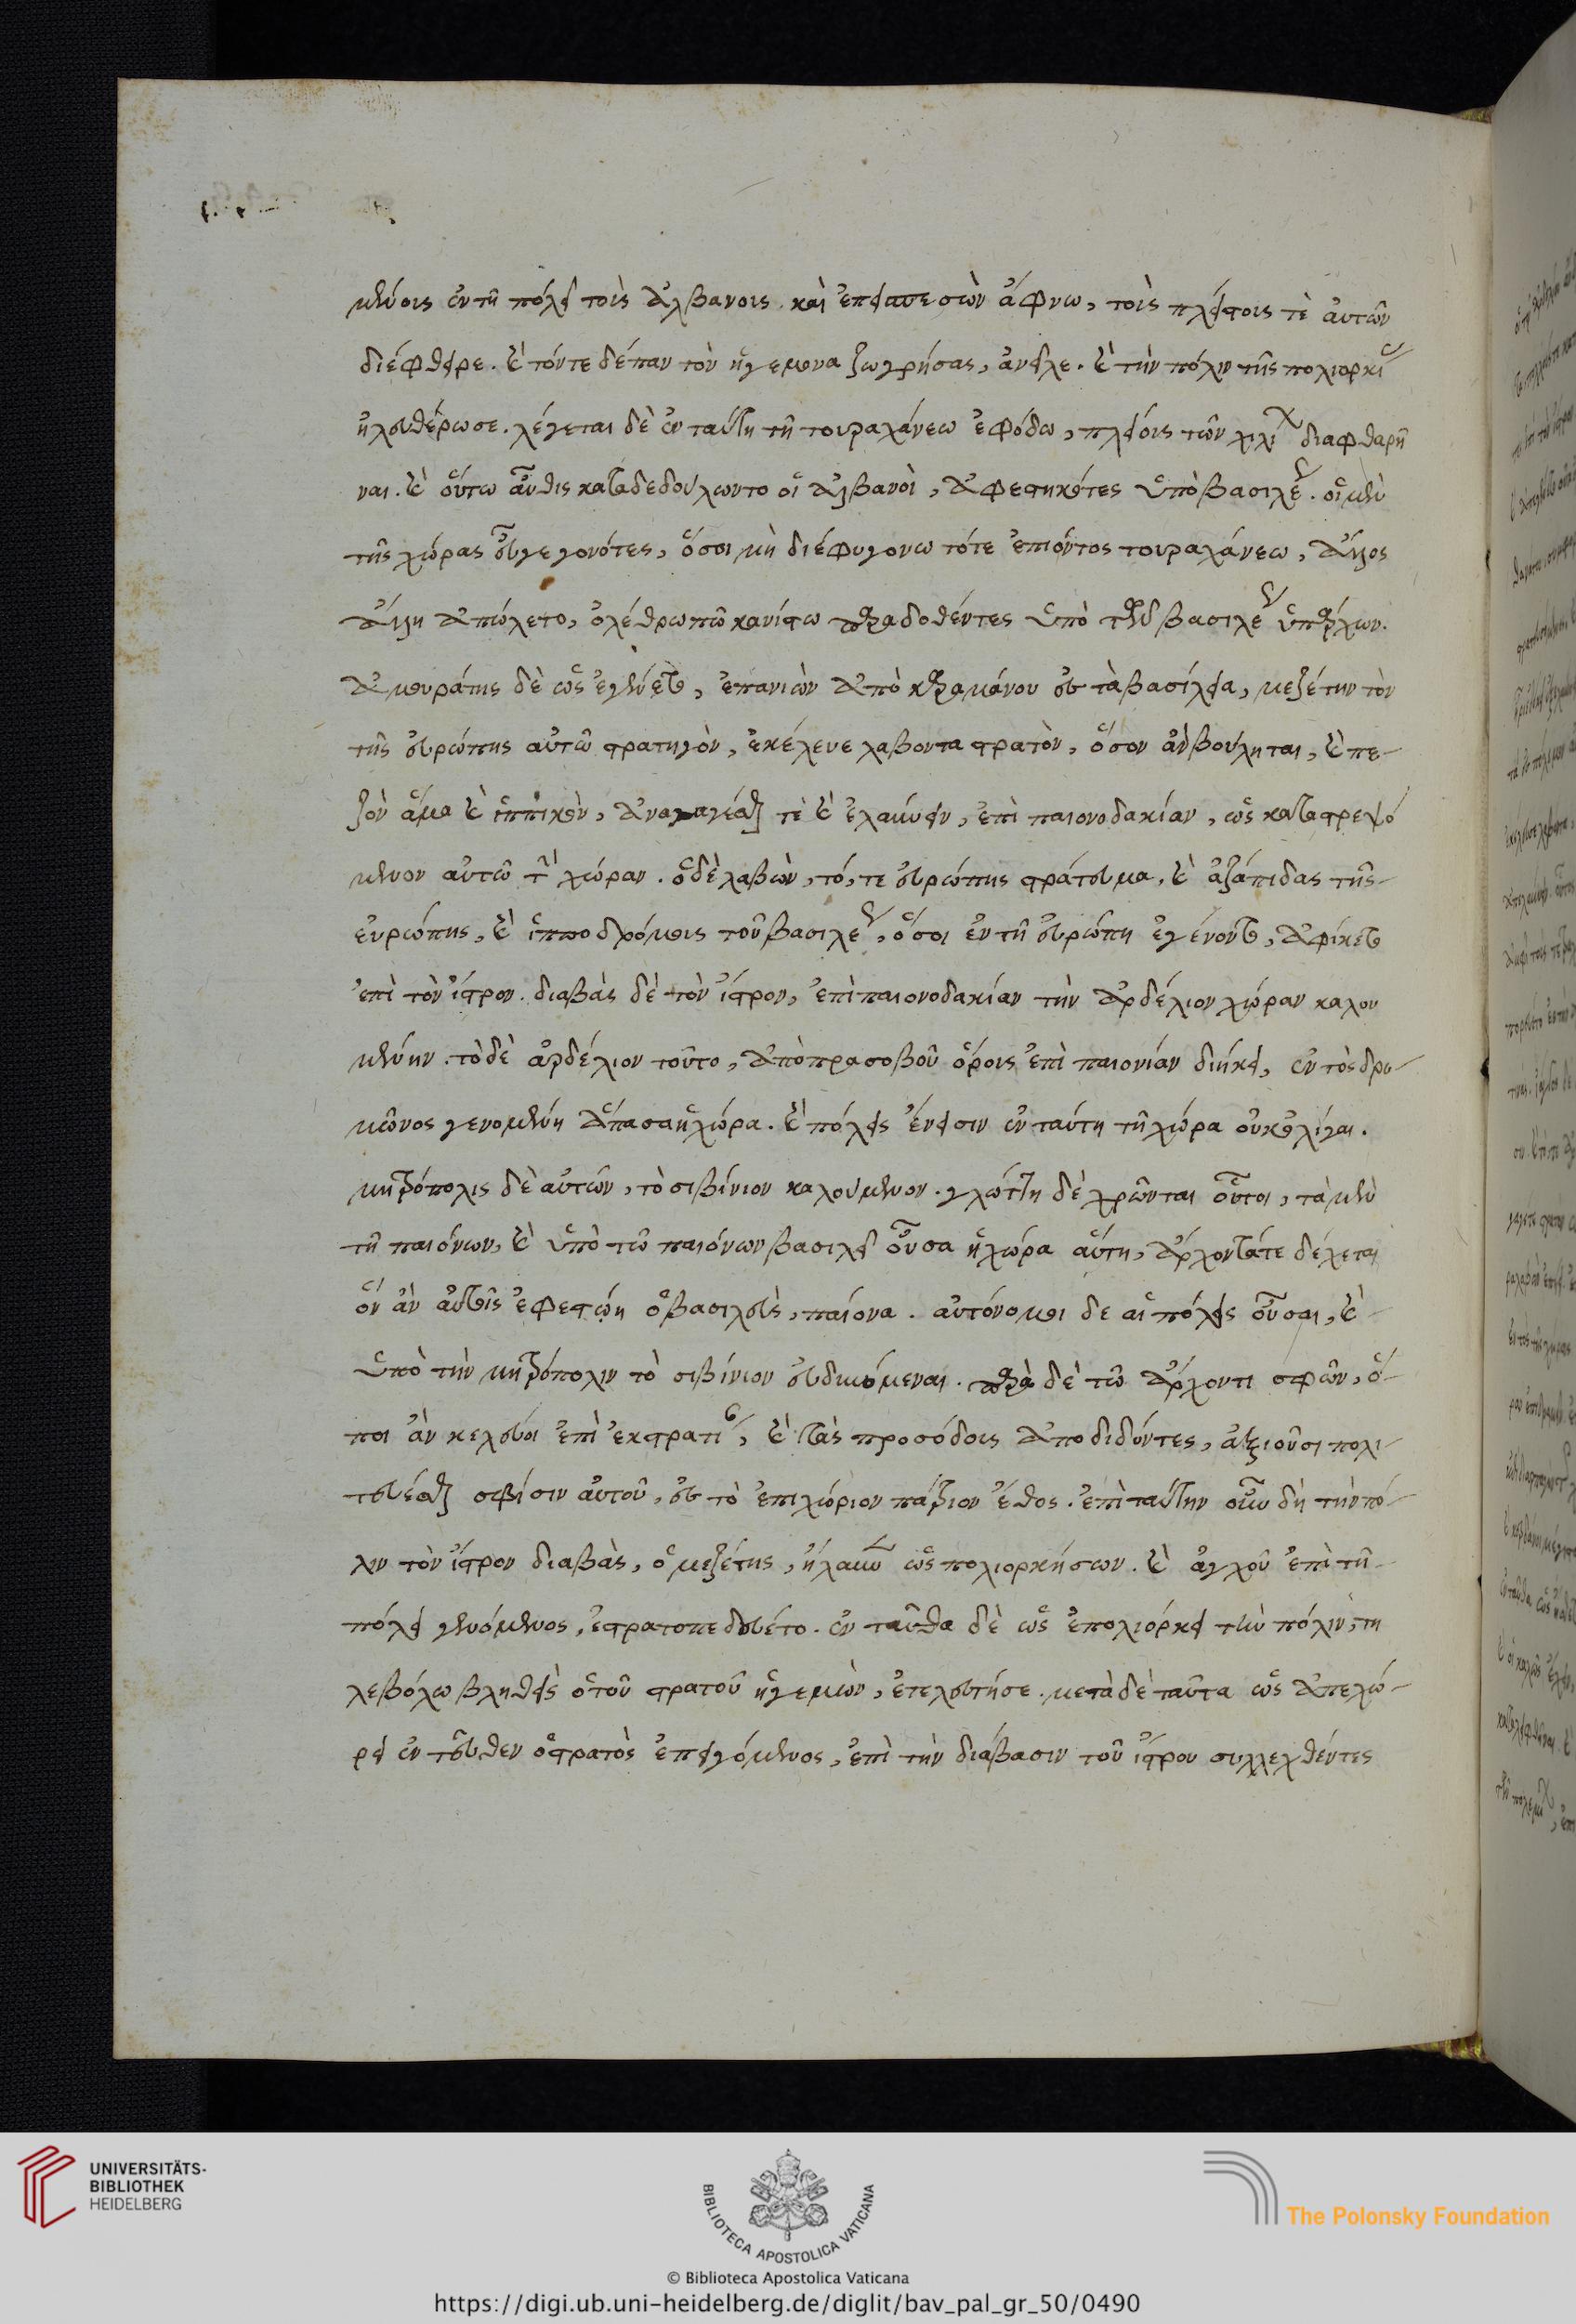 μένοις ἐν τῇ πόλει τοῖς ἀλβανοῖς. καὶ ἐπεισπεσὼν ἄφνω, τοὺς πλείστους τὲ αὐτῶν
διέφθειρε. καὶ τόντε δέπαν τὸν ἡγεμόνα ζωγρήσας, ἀνεῖλε. καὶ τὴν πόλιν τῆς πολιορκίας
ἠλευθέρωσε. λέγεται δὲ ἐν ταύτῃ τῇ τουραχάνεω ἐφόδω, πλείους τῶν χιλίων διαφθαρῆ
ναι. καὶ οὕτω αὖθις καταδεδούλωντο οἱ ἀλβανοὶ, ἀφεστηκότες ὑπὸ βασιλέως. οἱ μὲν
τῆς χώρας εὖ γεγονότες, ὅσοι μὴ διέφυγον τότε ἐπιόντος τουραχάνεω, ἄλλος
ἄλλῃ ἀπώλετο, ὀλέθρω τῶ κακίστω παραδοθέντες ὑπὸ τῶν βασιλέως ὑπάρχων.
ἀμουράτης δὲ ὡς ἐγένετο, ἐπανιὼν ἀπὸ καραμάνου ἐς τὰ βασίλεια, μεζέτην τὸν
τῆς εὐρώπης αὐτῶ στρατηγὸν, ἐκέλευε λαβόντα στρατὸν, ὅσον ἂν βούληται, καὶ πε-
ζὸν ἅμα καὶ ἱππικὸν, ἀναγαγέσθαι τὲ καὶ ἐλαύνειν, ἐπὶ παιονοδακίαν, ὡς καταστρεψό
μενον αὐτῶ τὴν χώραν. ὁ δὲ λαβὼν, τό, τε εὐρώπης στράτευμα, καὶ ἀζάπιδας τῆς-
εὐρώπης, καὶ ἱπποδρόμους τοῦ βασιλέως, ὅσοι ἐν τῇ εὐρώπῃ ἐγένοντο, ἀφίκετο
ἐπὶ τὸν ἴστρον. διαβὰς δὲ τὸν ἴστρον, ἐπὶ παιονοδακίαν τὴν ἀρδέλιον χώραν καλου
μένην. τὸ δὲ ἀρδέλιον τοῦτο, ἀπὸ πρασοβοῦ ὄρους ἐπὶ παιονίαν διήκει, ἐντὸς δρυ-
μῶνος γενομένη ἅπασα ἡ χώρα. καὶ πόλεις ἔνεισιν ἐν ταύτῃ τῇ χώρα οὐκ ὀλίγαι.
μητρόπολις δὲ αὐτῶν, τὸ σιβίνιον καλούμενον. γλώττῃ δὲ χρῶνται οὗτοι, τὰ μὲν
τῇ παιόνων, καὶ ὑπὸ τῶ παιόνων βασιλεῖ οὖσα ἡ χώρα αὕτη, ἄρχοντά τε δέχεται
ὃν ἂν αὐτοῖς ἐφεστώῃ ὁ βασιλεὺς, παίονα. αὐτόνομοι δὲ αἱ πόλεις οὖσαι, καὶ-
ὑπὸ τὴν μητρόπολιν τὸ σιβίνιον εὐδικόμεναι. παρὰ δὲ τῶ ἄρχοντι σφῶν, ὅ-
ποι ἂν κελεύοι ἐπὶ ἐκστρατεύεσθαι, καὶ τὰς προσόδους ἀποδιδόντες, ἀξιοῦσι πολι-
τεύεσθαι σφίσιν αὐτοῦ, ἐς τὸ ἐπιχώριον πάτριον ἔθος. ἐπὶ ταύτην οὖν δὴ τὴν πό-
λιν τὸν ἴστρον διαβὰς, ὁ μεζέτης, ἤλαυνεν ὡς πολιορκήσων. καὶ ἀγχοῦ ἐπὶ τῇ-
πόλει γενόμενος, ἐστρατοπεδεύετο. ἐνταῦθα δὲ ὡς ἐπολιόρκει τὴν πόλιν, τη
λεβόλω βληθεὶς ὁ τοῦ στρατοῦ ἡγεμὼν, ἐτελεύτησε. μετὰ δὲ ταῦτα ὡς ἀπεχώ-
ρει ἐντεῦθεν ὁ στρατὸς ἐπειγόμενος, ἐπὶ τὴν διάβασιν τοῦ ἴστρου συλλεχθέντες
UNIVERSITÄTS-
BIBLIOTHEK
HEIDELBERG
BIBLIOTECA APOSTOLICA VATICANA
The Polonsky Foundation
© Biblioteca Apostolica Vaticana
https://digi.ub.uni-heidelberg.de/diglit/bav_pal_gr_50/0490